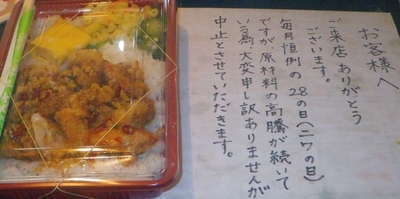 お客様へ
ご来店ありがとう
ございます。
毎月恒例の28の日(ニワの日)
ですが、原材料の高騰が続いて
いる為、大変申し訳ありませんが
中止とさせていただきます。